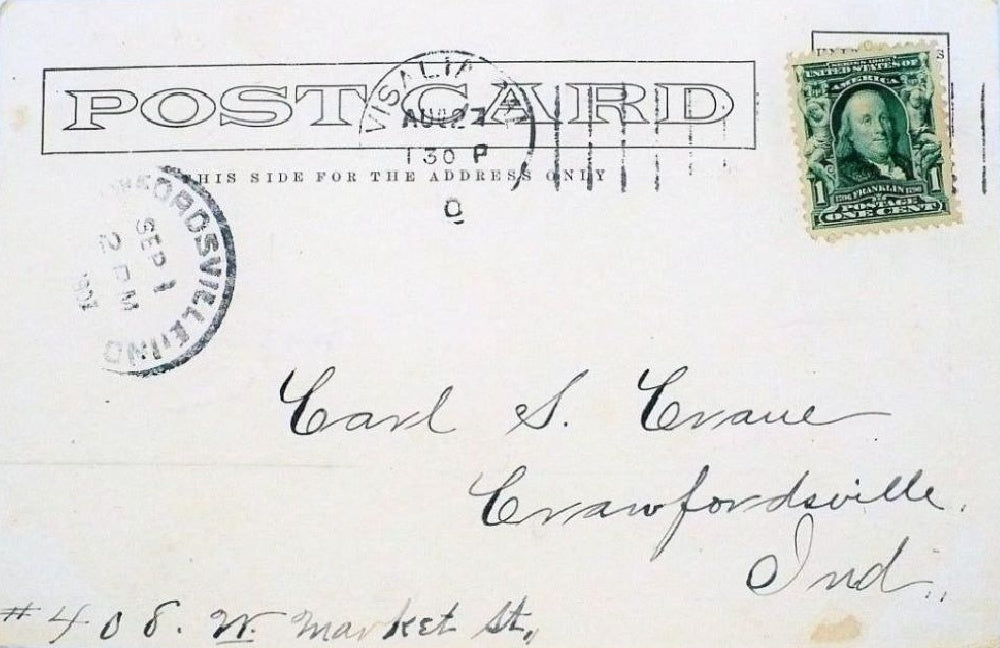 POST CARD
THIS SIDE FOR THE ADDRESS ONLY
VISALIA
AUG 27
1 30 P
UNITED STATES OF
AMERICA
1 FRANKLIN 1
POSTAGE
ONE CENT
SEP 1
2 PM
IND
Carl S. Crane
Crawfordsville.
Ind.
#408. W. Market St.